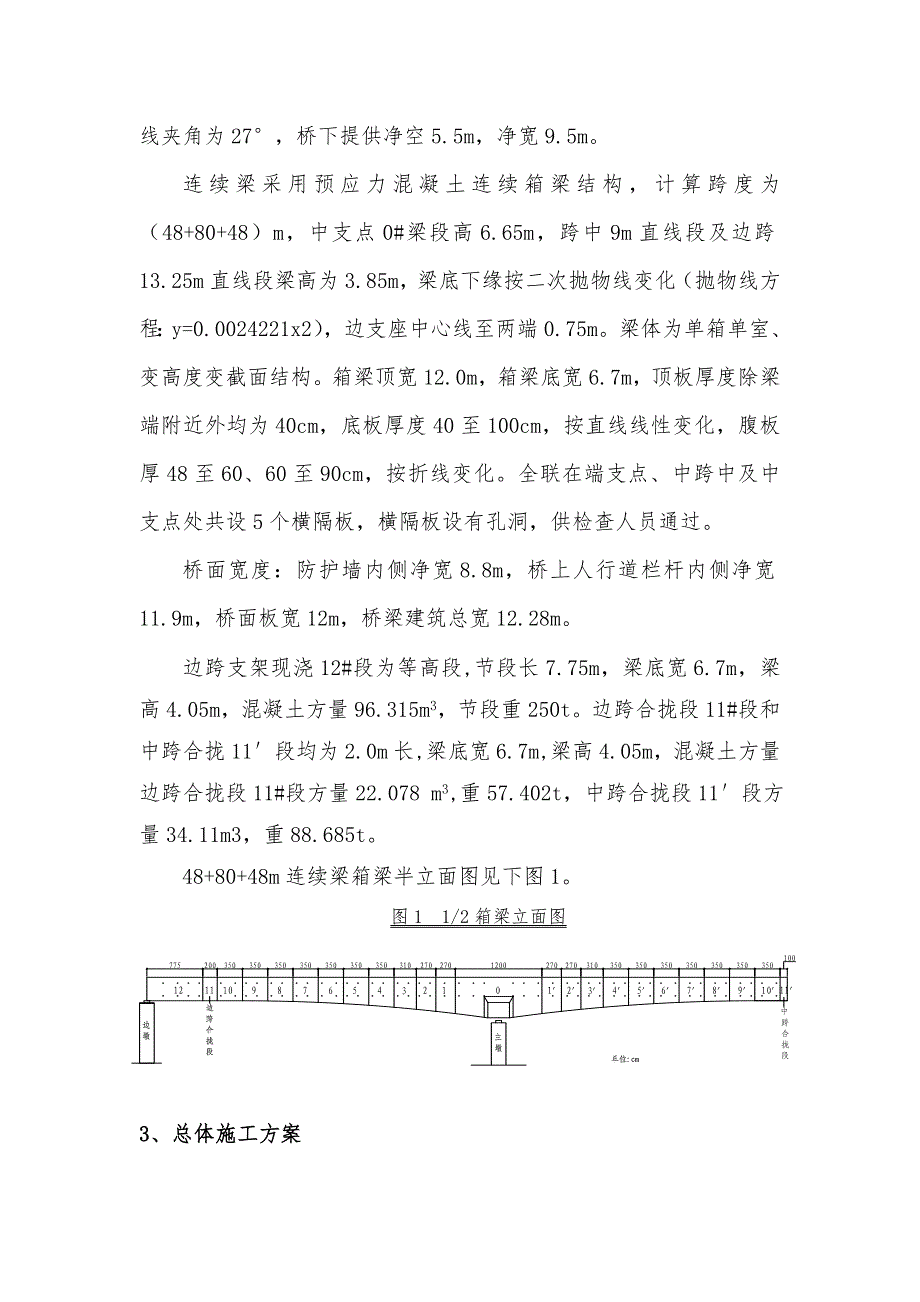 线夹角为27°，桥下提供净空5.5m，净宽9.5m。
连续梁采用预应力混凝土连续箱梁结构，计算跨度为
（48+80+48）m，中支点0#梁段高6.65m，跨中9m直线段及边跨
13.25m直线段梁高为3.85m，梁底下缘按二次抛物线变化（抛物线方
程：y=0.0024221x2），边支座中心线至两端0.75m。梁体为单箱单室、
变高度变截面结构。箱梁顶宽12.0m，箱梁底宽6.7m，顶板厚度除梁
端附近外均为40cm，底板厚度40至100cm，按直线线性变化，腹板
厚48至60、60至90cm，按折线变化。全联在端支点、中跨中及中
支点处共设5个横隔板，横隔板设有孔洞，供检查人员通过。
桥面宽度：防护墙内侧净宽8.8m，桥上人行道栏杆内侧净宽
11.9m，桥面板宽12m，桥梁建筑总宽12.28m。
边跨支架现浇12#段为等高段,节段长7.75m，梁底宽6.7m，梁
高4.05m，混凝土方量96.315m³，节段重250t。边跨合拢段11#段和
中跨合拢11′段均为2.0m长,梁底宽6.7m,梁高4.05m，混凝土方量
边跨合拢段11#段方量22.078 m³,重57.402t，中跨合拢段11′段方
量34.11m3，重88.685t。
48+80+48m连续梁箱梁半立面图见下图1。
图1 1/2箱梁立面图
775 200 350 350 350 350 350 350 350 310 270 270 1200 270 270 310 350 350 350 350 350 350 350 100
12 11 10 9 8 7 6 5 4 3 2 1 0 1′ 2′ 3′ 4′ 5′ 6′ 7′ 8′ 9′ 10′ 11′
边墩
边跨合拢段
主墩
中跨合拢段
单位:cm
3、总体施工方案